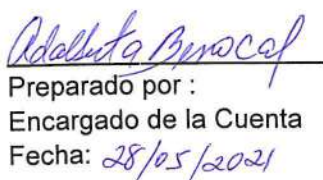 Adalberta Berrocal
Preparado por :
Encargado de la Cuenta
Fecha: 28/05/2021